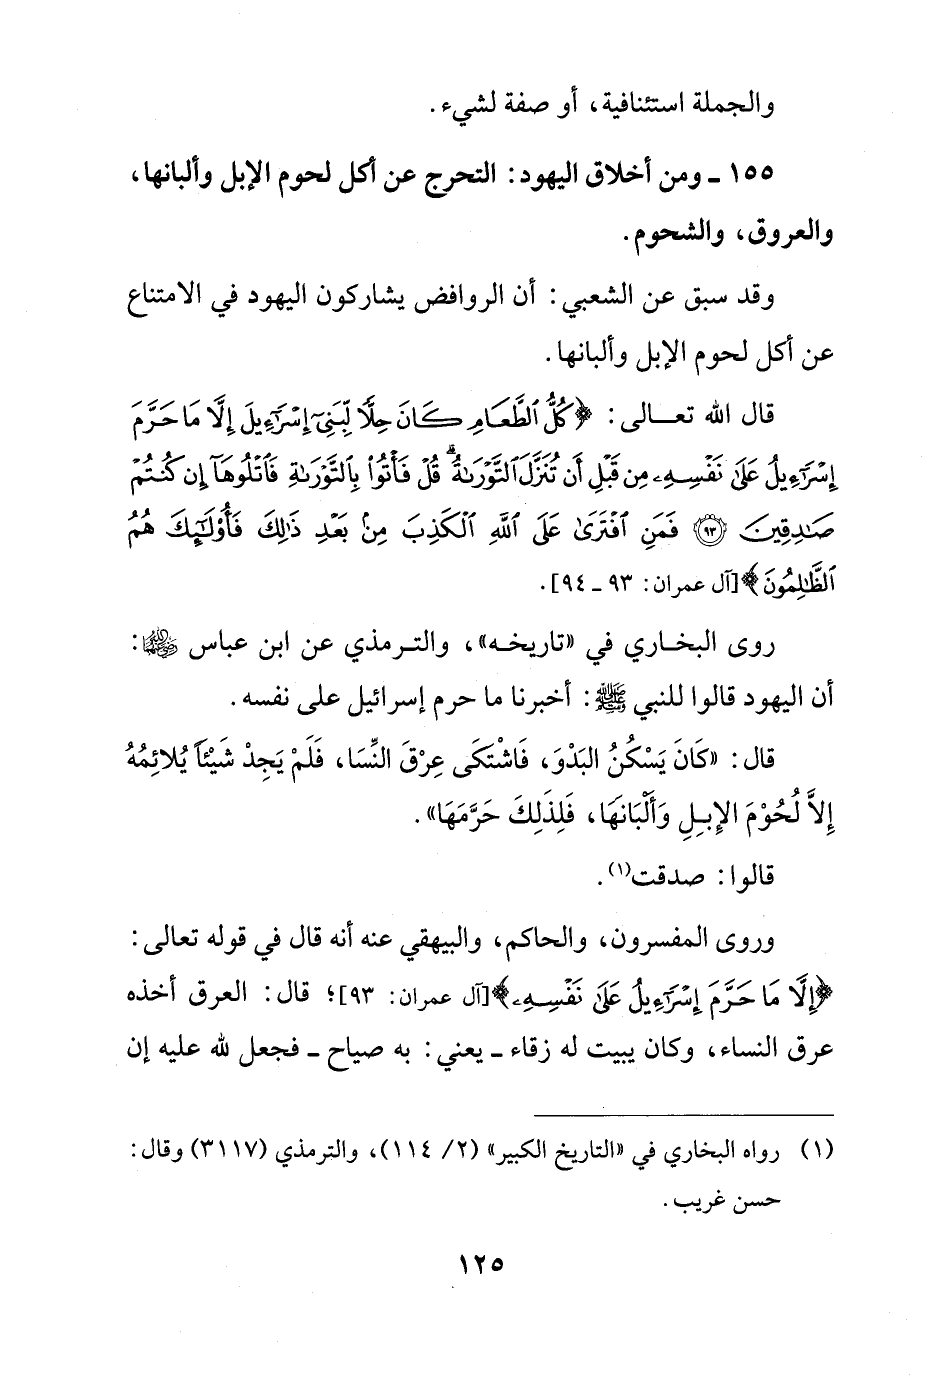 والجملة استئنافية، أو صفة لشيء.
١٥٥ ـ ومن أخلاق اليهود: التحرج عن أكل لحوم الإبل وألبانها،
والعروق، والشحوم.
وقد سبق عن الشعبي: أن الروافض يشاركون اليهود في الامتناع
عن أكل لحوم الإبل وألبانها.
قال الله تعـــالى: ﴿كُلُّ ٱلطَّعَامِ كَانَ حِلًّا لِّبَنِىٓ إِسْرَٰٓءِيلَ إِلَّا مَا حَرَّمَ
إِسْرَٰٓءِيلُ عَلَىٰ نَفْسِهِۦ مِن قَبْلِ أَن تُنَزَّلَ ٱلتَّوْرَىٰةُ ۗ قُلْ فَأْتُوا۟ بِٱلتَّوْرَىٰةِ فَٱتْلُوهَآ إِن كُنتُمْ
صَـٰدِقِينَ ﴿٩٣﴾ فَمَنِ ٱفْتَرَىٰ عَلَى ٱللَّهِ ٱلْكَذِبَ مِنۢ بَعْدِ ذَٰلِكَ فَأُو۟لَـٰٓئِكَ هُمُ
ٱلظَّـٰلِمُونَ﴾ [آل عمران: ٩٣ ـ ٩٤].
روى البخـاري في «تاريخـه»، والتـرمذي عن ابن عباس ﵄:
أن اليهود قالوا للنبي ﷺ: أخبرنا ما حرم إسرائيل على نفسه.
قال: «كَانَ يَسْكُنُ البَدْوَ، فَاشْتَكَى عِرْقَ النِّسَا، فَلَمْ يَجِدْ شَيْئاً يُلائِمُهُ
إِلاَّ لُحُوْمَ الإِبـِلِ وَأَلْبَانَهَا، فَلِذَلِكَ حَرَّمَهَا».
قالوا: صدقت(١).
وروى المفسرون، والحاكم، والبيهقي عنه أنه قال في قوله تعالى:
﴿إِلَّا مَا حَرَّمَ إِسْرَٰٓءِيلُ عَلَىٰ نَفْسِهِۦ﴾ [آل عمران: ٩٣]؛ قال: العرق أخذه
عرق النساء، وكان يبيت له زقاء ـ يعني: به صياح ـ فجعل لله عليه إن
(١) رواه البخاري في «التاريخ الكبير» (٢/ ١١٤)، والترمذي (٣١١٧) وقال:
حسن غريب.
١٢٥